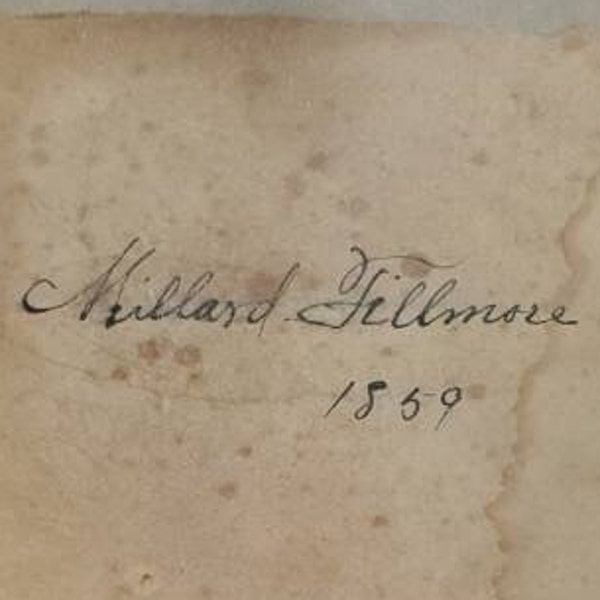 Millard Fillmore
1859